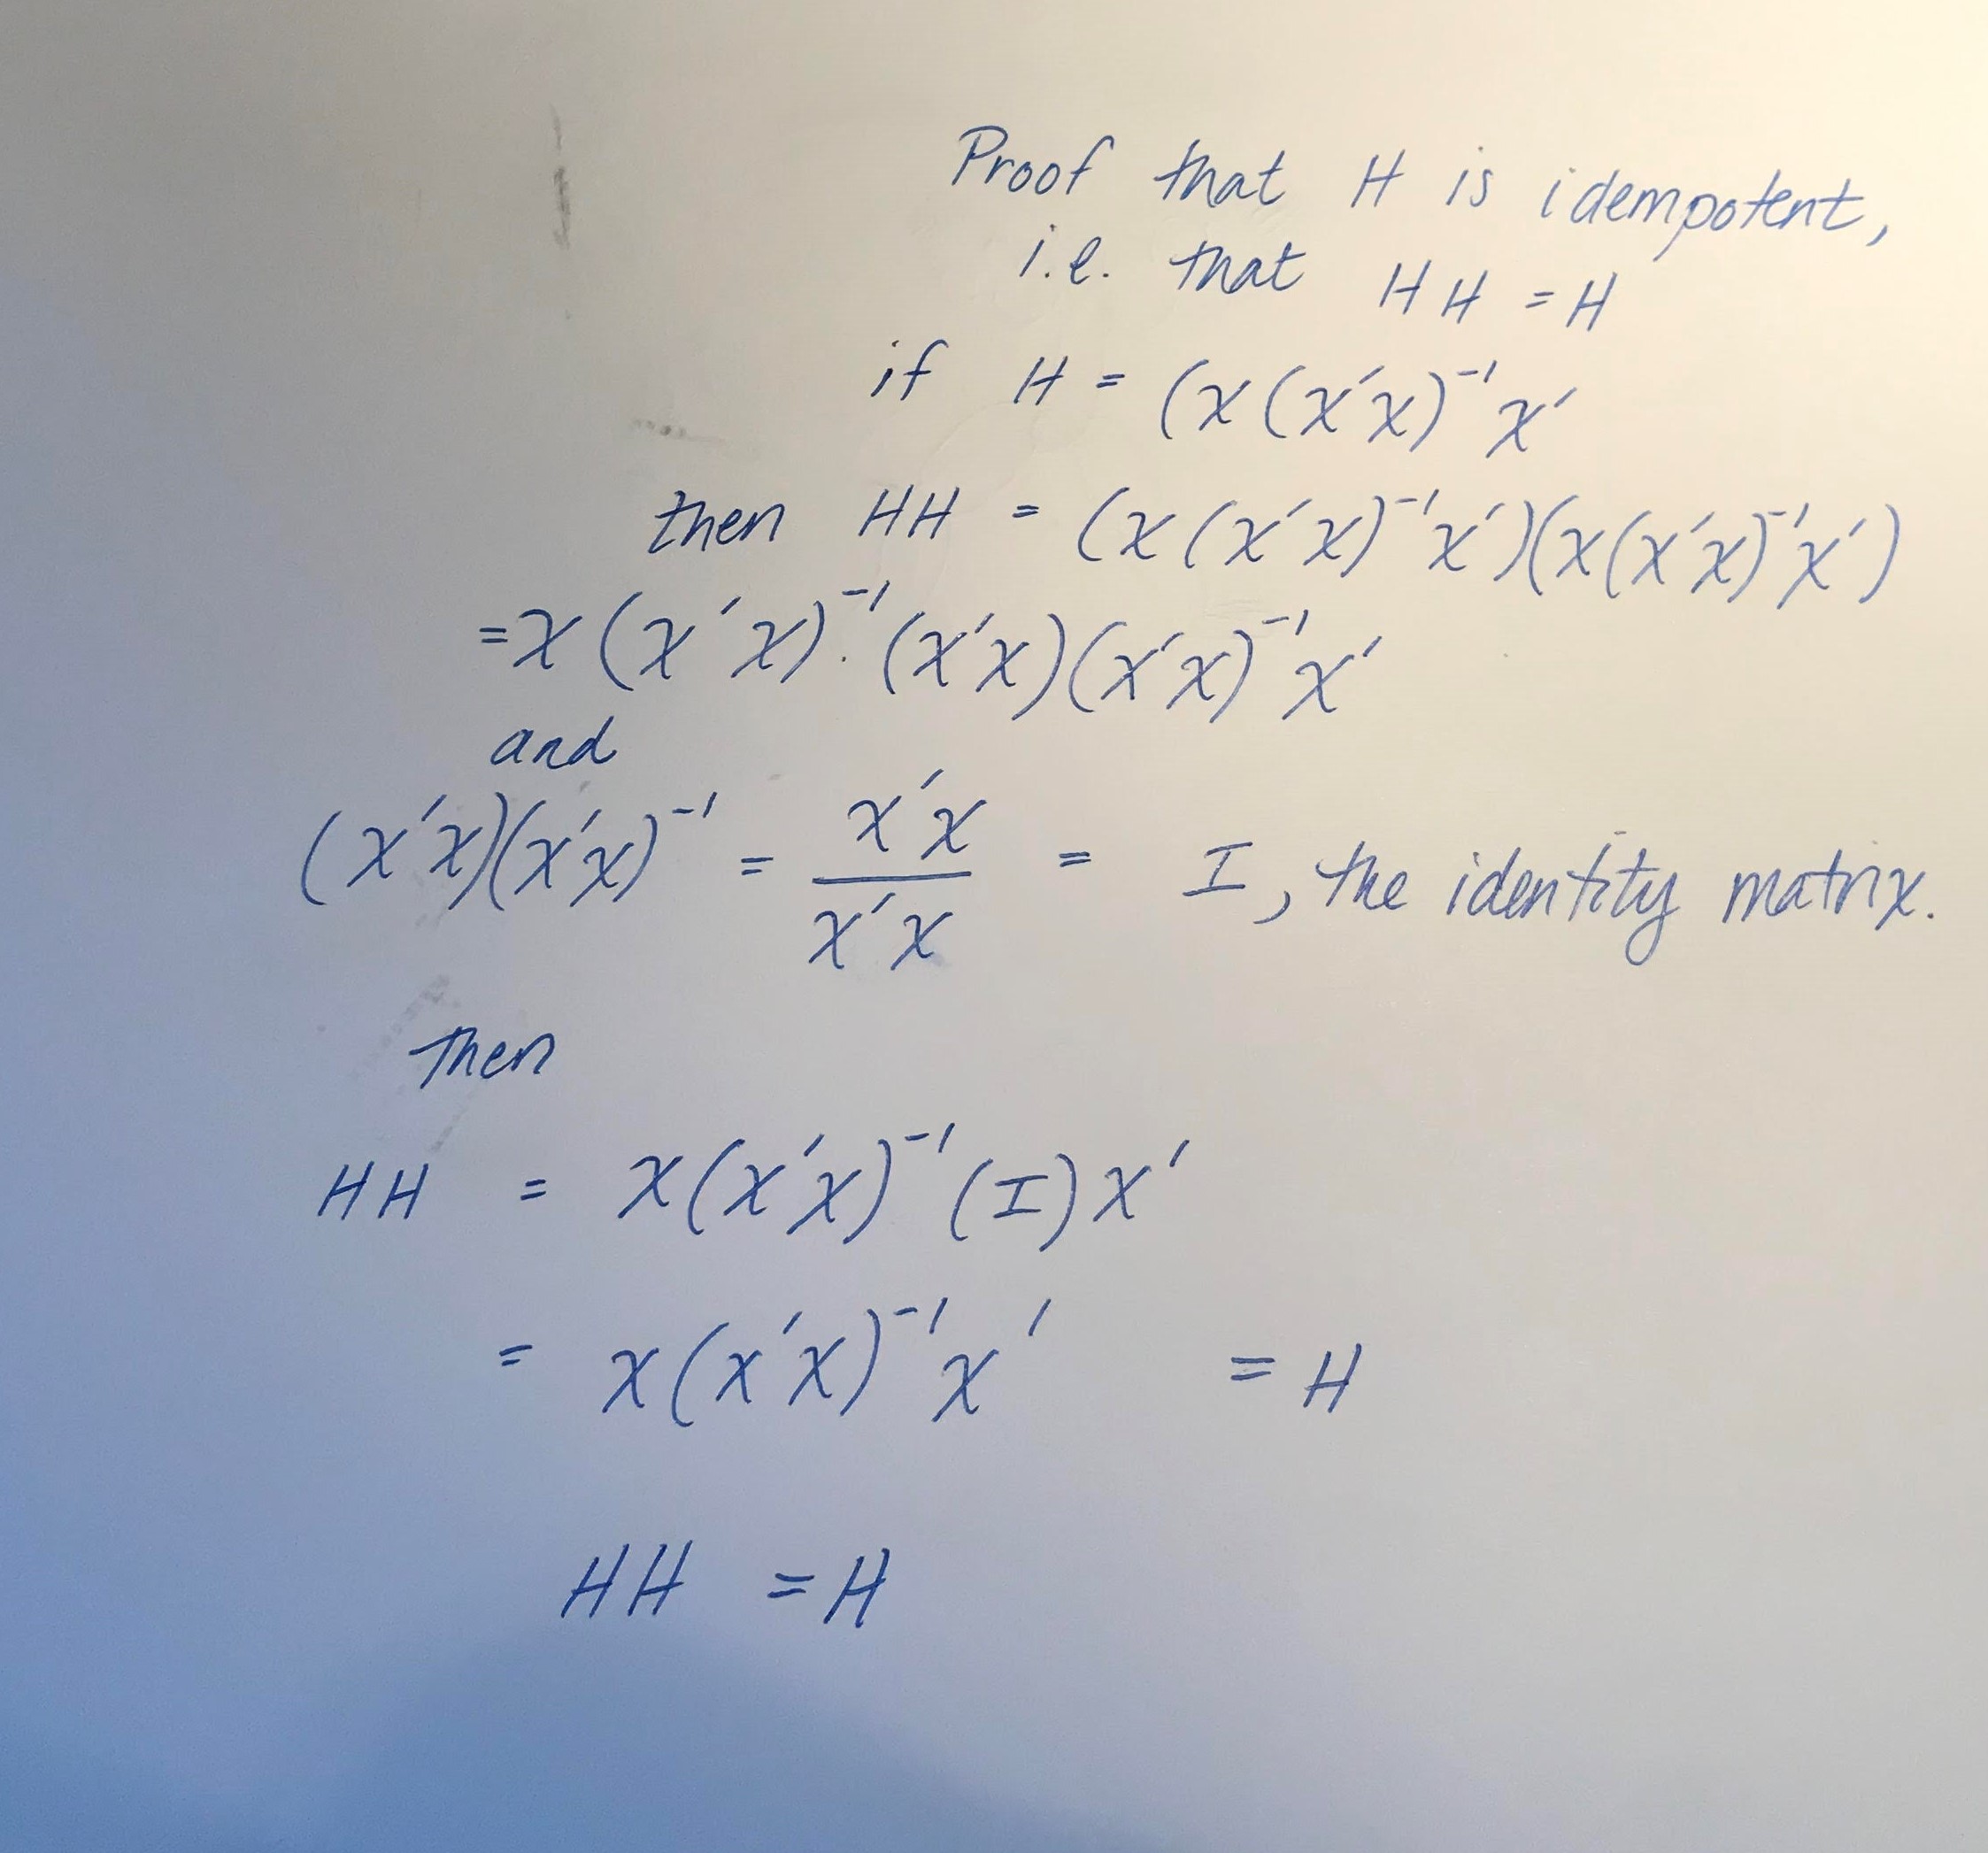 Proof that H is idempotent,
i.e. that HH = H
if H = (X(X'X)⁻¹X'
then HH = (X(X'X)⁻¹X')(X(X'X)⁻¹X')
=X(X'X)⁻¹(X'X)(X'X)⁻¹X'
and
(X'X)(X'X)⁻¹ = X'X / X'X = I, the identity matrix.
Then
HH = X(X'X)⁻¹(I)X'
= X(X'X)⁻¹X' = H
HH = H